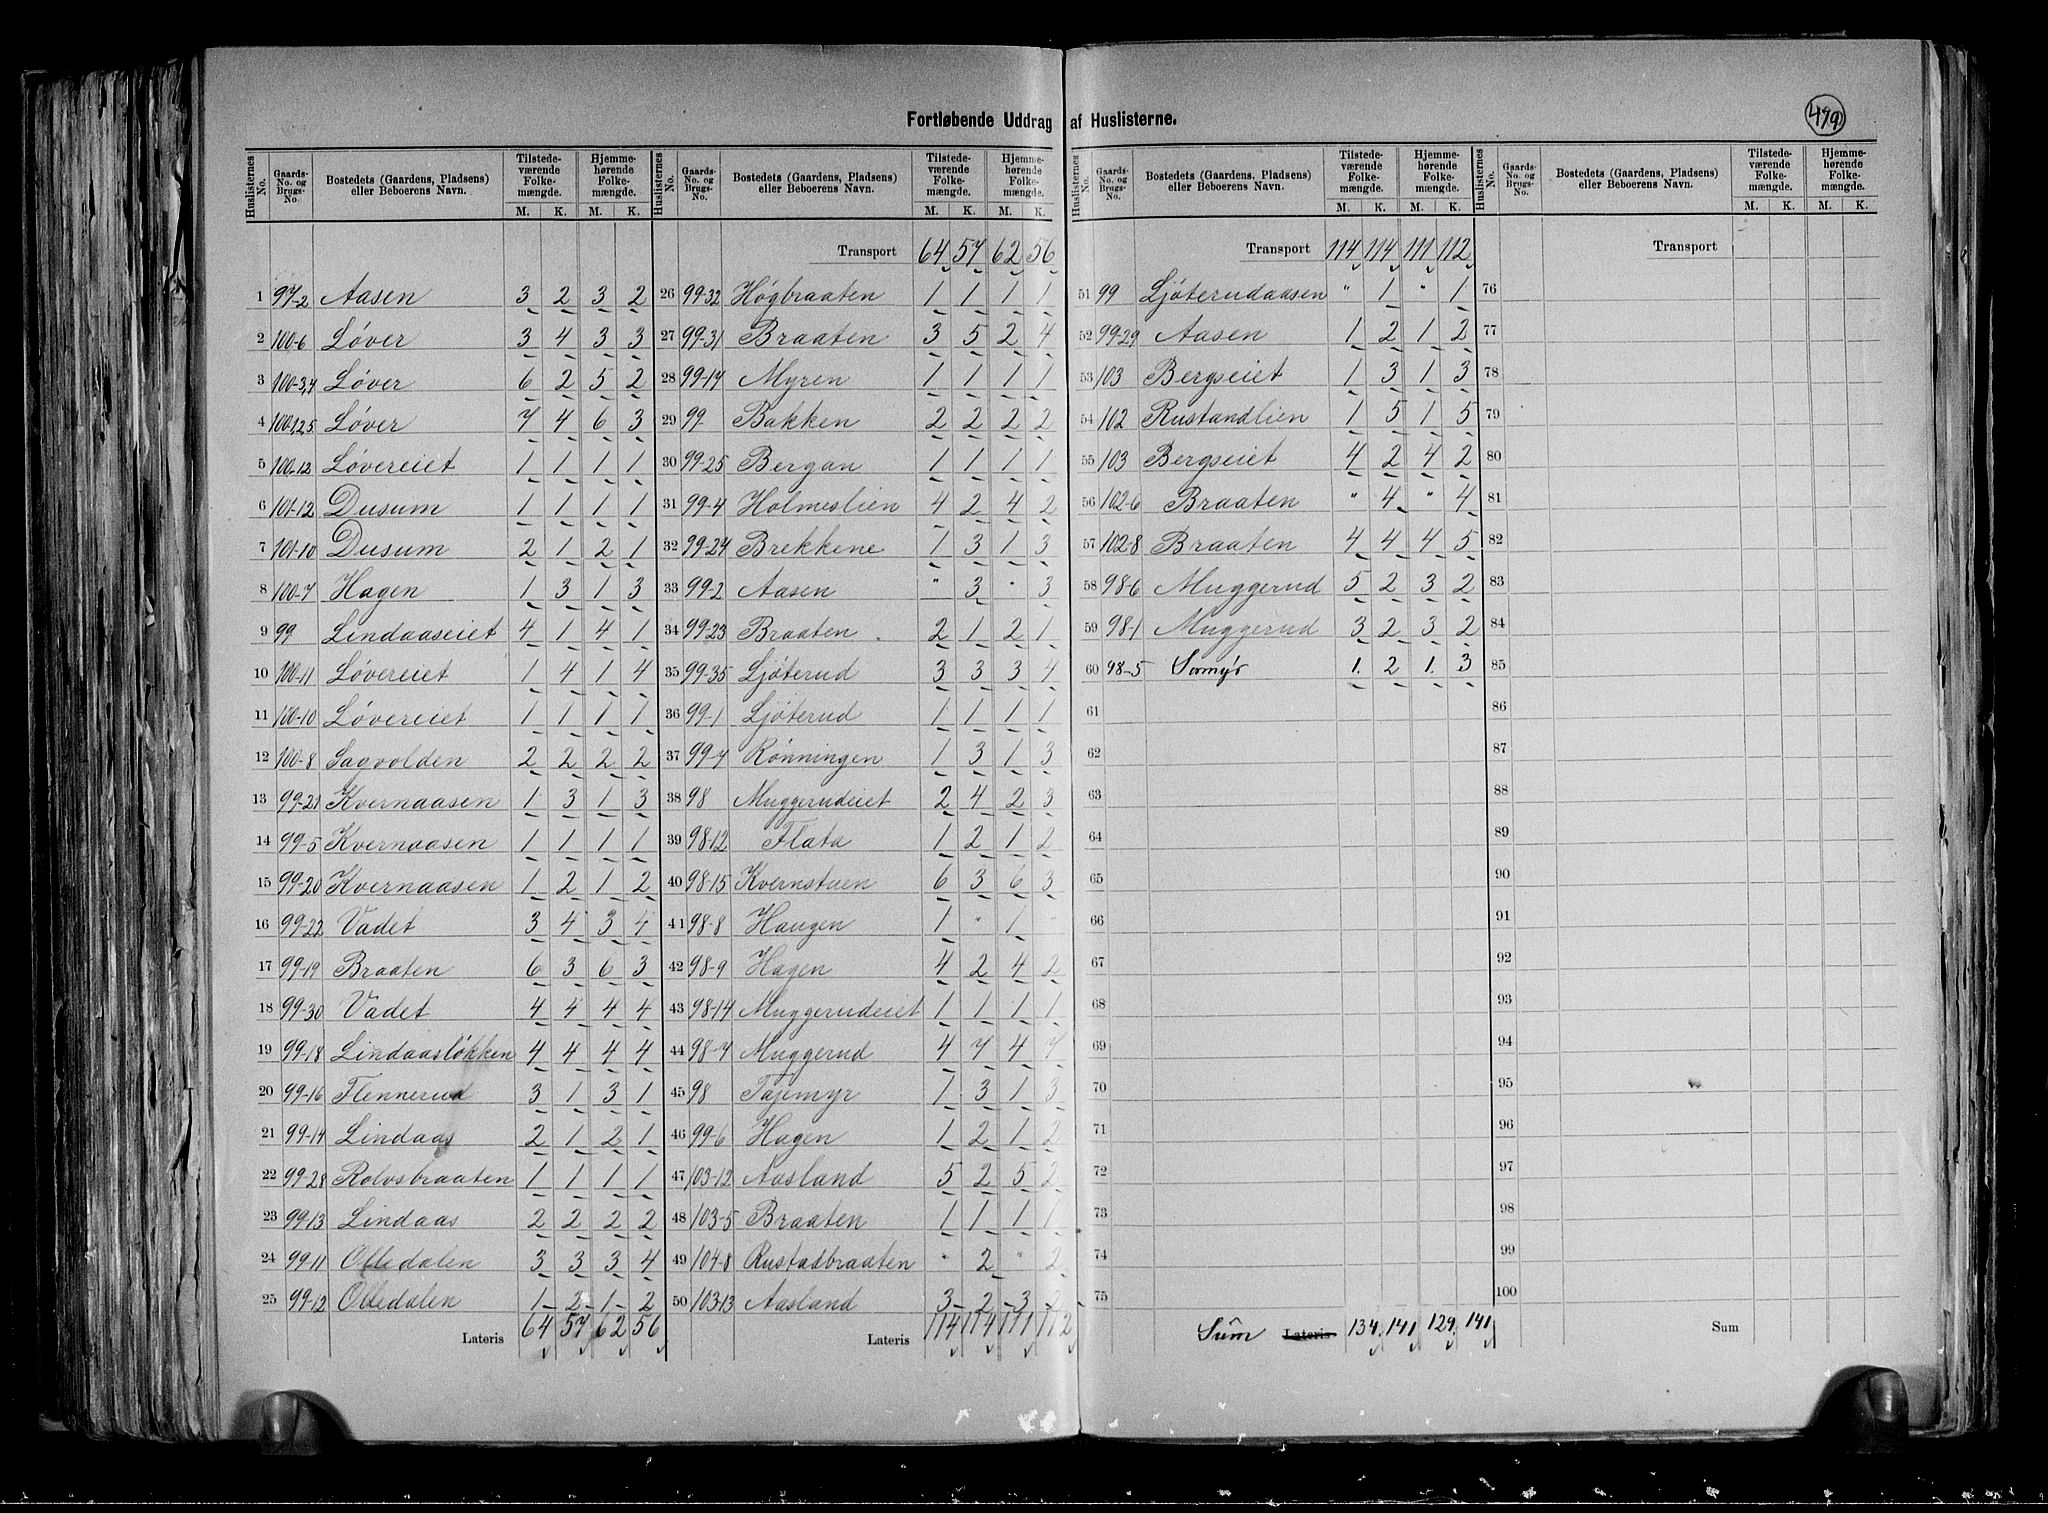 Fortløbende Uddrag af Huslisterne.
479
Huslisternes No. Gaards-No. og Brugs-No. Bostedets (Gaardens, Pladsens) eller Beboerens Navn. Tilstedeværende Folkemængde. M. K. Hjemmehørende Folkemængde. M. K.
1 97-2 Aasen 3 2 3 2
2 100-6 Løver 3 4 3 3
3 100-3,4 Løver 6 2 5 2
4 100-1,2,5 Løver 7 4 6 3
5 100-12 Løvereiet 1 1 1 1
6 101-12 Dusum 1 1 1 1
7 101-10 Dusum 2 1 2 1
8 100-7 Hagen 1 3 1 3
9 99 Lindaaseiet 4 1 4 1
10 100-11 Løvereiet 1 4 1 4
11 100-10 Løvereiet 1 1 1 1
12 100-8 Sagvolden 2 2 2 2
13 99-21 Kvernaasen 1 3 1 3
14 99-5 Kvernaasen 1 1 1 1
15 99-20 Kvernaasen 1 2 1 2
16 99-22 Vadet 3 4 3 4
17 99-19 Braaten 6 3 6 3
18 99-30 Vadet 4 4 4 4
19 99-18 Lindaasløkken 4 4 4 4
20 99-16 Flennerud 3 1 3 1
21 99-14 Lindaas 2 1 2 1
22 99-28 Rolvsbraaten 1 1 1 1
23 99-13 Lindaas 2 2 2 2
24 99-11 Olledalen 3 3 3 4
25 99-12 Olledalen 1 2 1 2
Lateris 64 57 62 56
Huslisternes No. Gaards-No. og Brugs-No. Bostedets (Gaardens, Pladsens) eller Beboerens Navn. Tilstedeværende Folkemængde. M. K. Hjemmehørende Folkemængde. M. K.
Transport 64 57 62 56
26 99-32 Høgbraaten 1 1 1 1
27 99-31 Braaten 3 5 2 4
28 99-17 Myren 1 1 1 1
29 99- Bakken 2 2 2 2
30 99-25 Bergan 1 1 1 1
31 99-4 Holmeslien 4 2 4 2
32 99-24 Brekkene 1 3 1 3
33 99-2 Aasen " 3 " 3
34 99-23 Braaten 2 1 2 1
35 99-35 Ljøterud 3 3 3 4
36 99-1 Ljøterud 1 1 1 1
37 99-7 Rønningen 1 3 1 3
38 98 Muggerudeiet 2 4 2 3
39 98-12 Flata 1 2 1 2
40 98-15 Kvernstuen 6 3 6 3
41 98-8 Haugen 1 " 1 "
42 98-9 Hagen 4 2 4 2
43 98-14 Muggerudeiet 1 1 1 1
44 98-7 Muggerud 4 7 4 7
45 98 Tajemyr 1 3 1 3
46 99-6 Hagen 1 2 1 2
47 103-12 Aasland 5 2 5 2
48 103-5 Braaten 1 1 1 1
49 104-8 Rustadbraaten " 2 " 2
50 103-13 Aasland 3 2 3 2
Lateris 114 114 111 112
Huslisternes No. Gaards-No. og Brugs-No. Bostedets (Gaardens, Pladsens) eller Beboerens Navn. Tilstedeværende Folkemængde. M. K. Hjemmehørende Folkemængde. M. K.
Transport 114 114 111 112
51 99 Ljøterudaasen " 1 " 1
52 99-29 Aasen 1 2 1 2
53 103 Bergseiet 1 3 1 3
54 102 Rustandlien 1 5 1 5
55 103 Bergseiet 4 2 4 2
56 102-6 Braaten " 4 " 4
57 102-8 Braaten 4 4 4 5
58 98-6 Muggerud 5 2 3 2
59 98-1 Muggerud 3 2 3 2
60 98-5 Sormyr 1. 2 1. 3
61
62
63
64
65
66
67
68
69
70
71
72
73
74
75
Sum Lateris 134, 141, 129, 141
Huslisternes No. Gaards-No. og Brugs-No. Bostedets (Gaardens, Pladsens) eller Beboerens Navn. Tilstedeværende Folkemængde. M. K. Hjemmehørende Folkemængde. M. K.
Transport
76
77
78
79
80
81
82
83
84
85
86
87
88
89
90
91
92
93
94
95
96
97
98
99
100
Sum